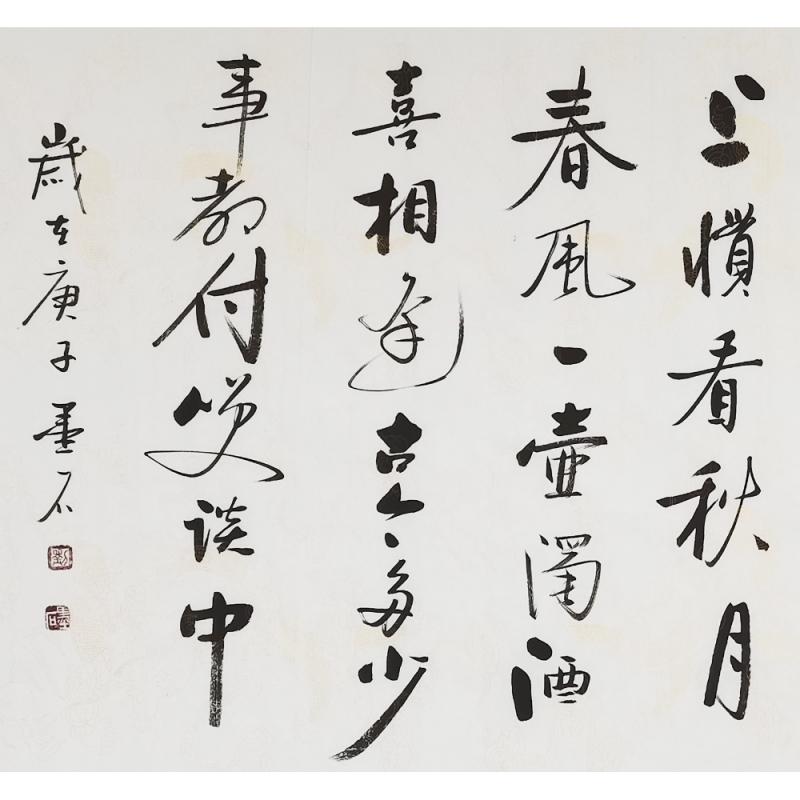 上慣看秋月
春風一壺濁酒
喜相逢古今多少
事都付笑談中
歲在庚子墨石
劉
墨石